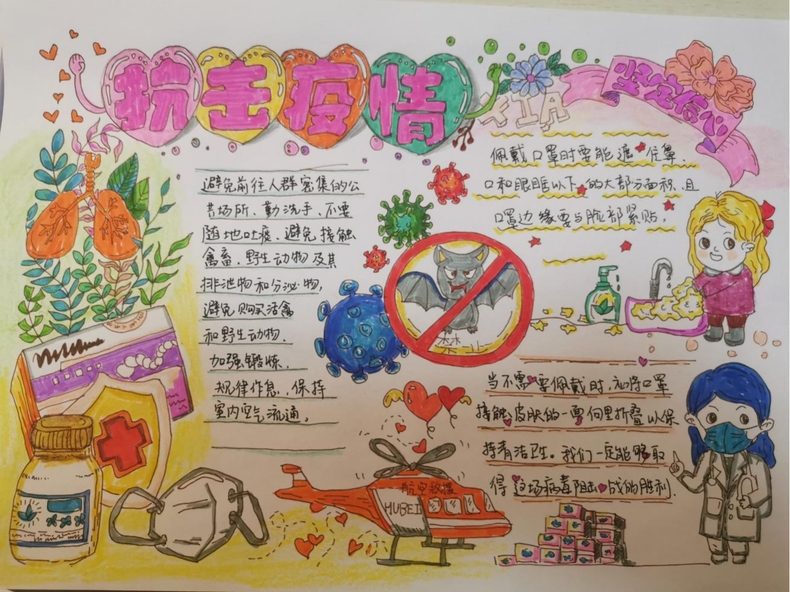 抗击疫情
XIA
坚定信心
避免前往人群密集的公
共场所、勤洗手、不要
随地吐痰、避免接触
禽畜、野生动物及其
排泄物和分泌物，
避免购买活禽
和野生动物.
加强锻炼.
规律作息、保持
室内空气流通.
佩戴口罩时要能遮住鼻、
口和眼眶以下的大部分面积，且
口罩边缘要与脸部紧贴，
禁
当不需要佩戴时，
接触皮肤的一面向里折叠以保
持清洁卫生。我们一定能够取
得这场病毒阻击战的胜利.
航空救援
HUBEI